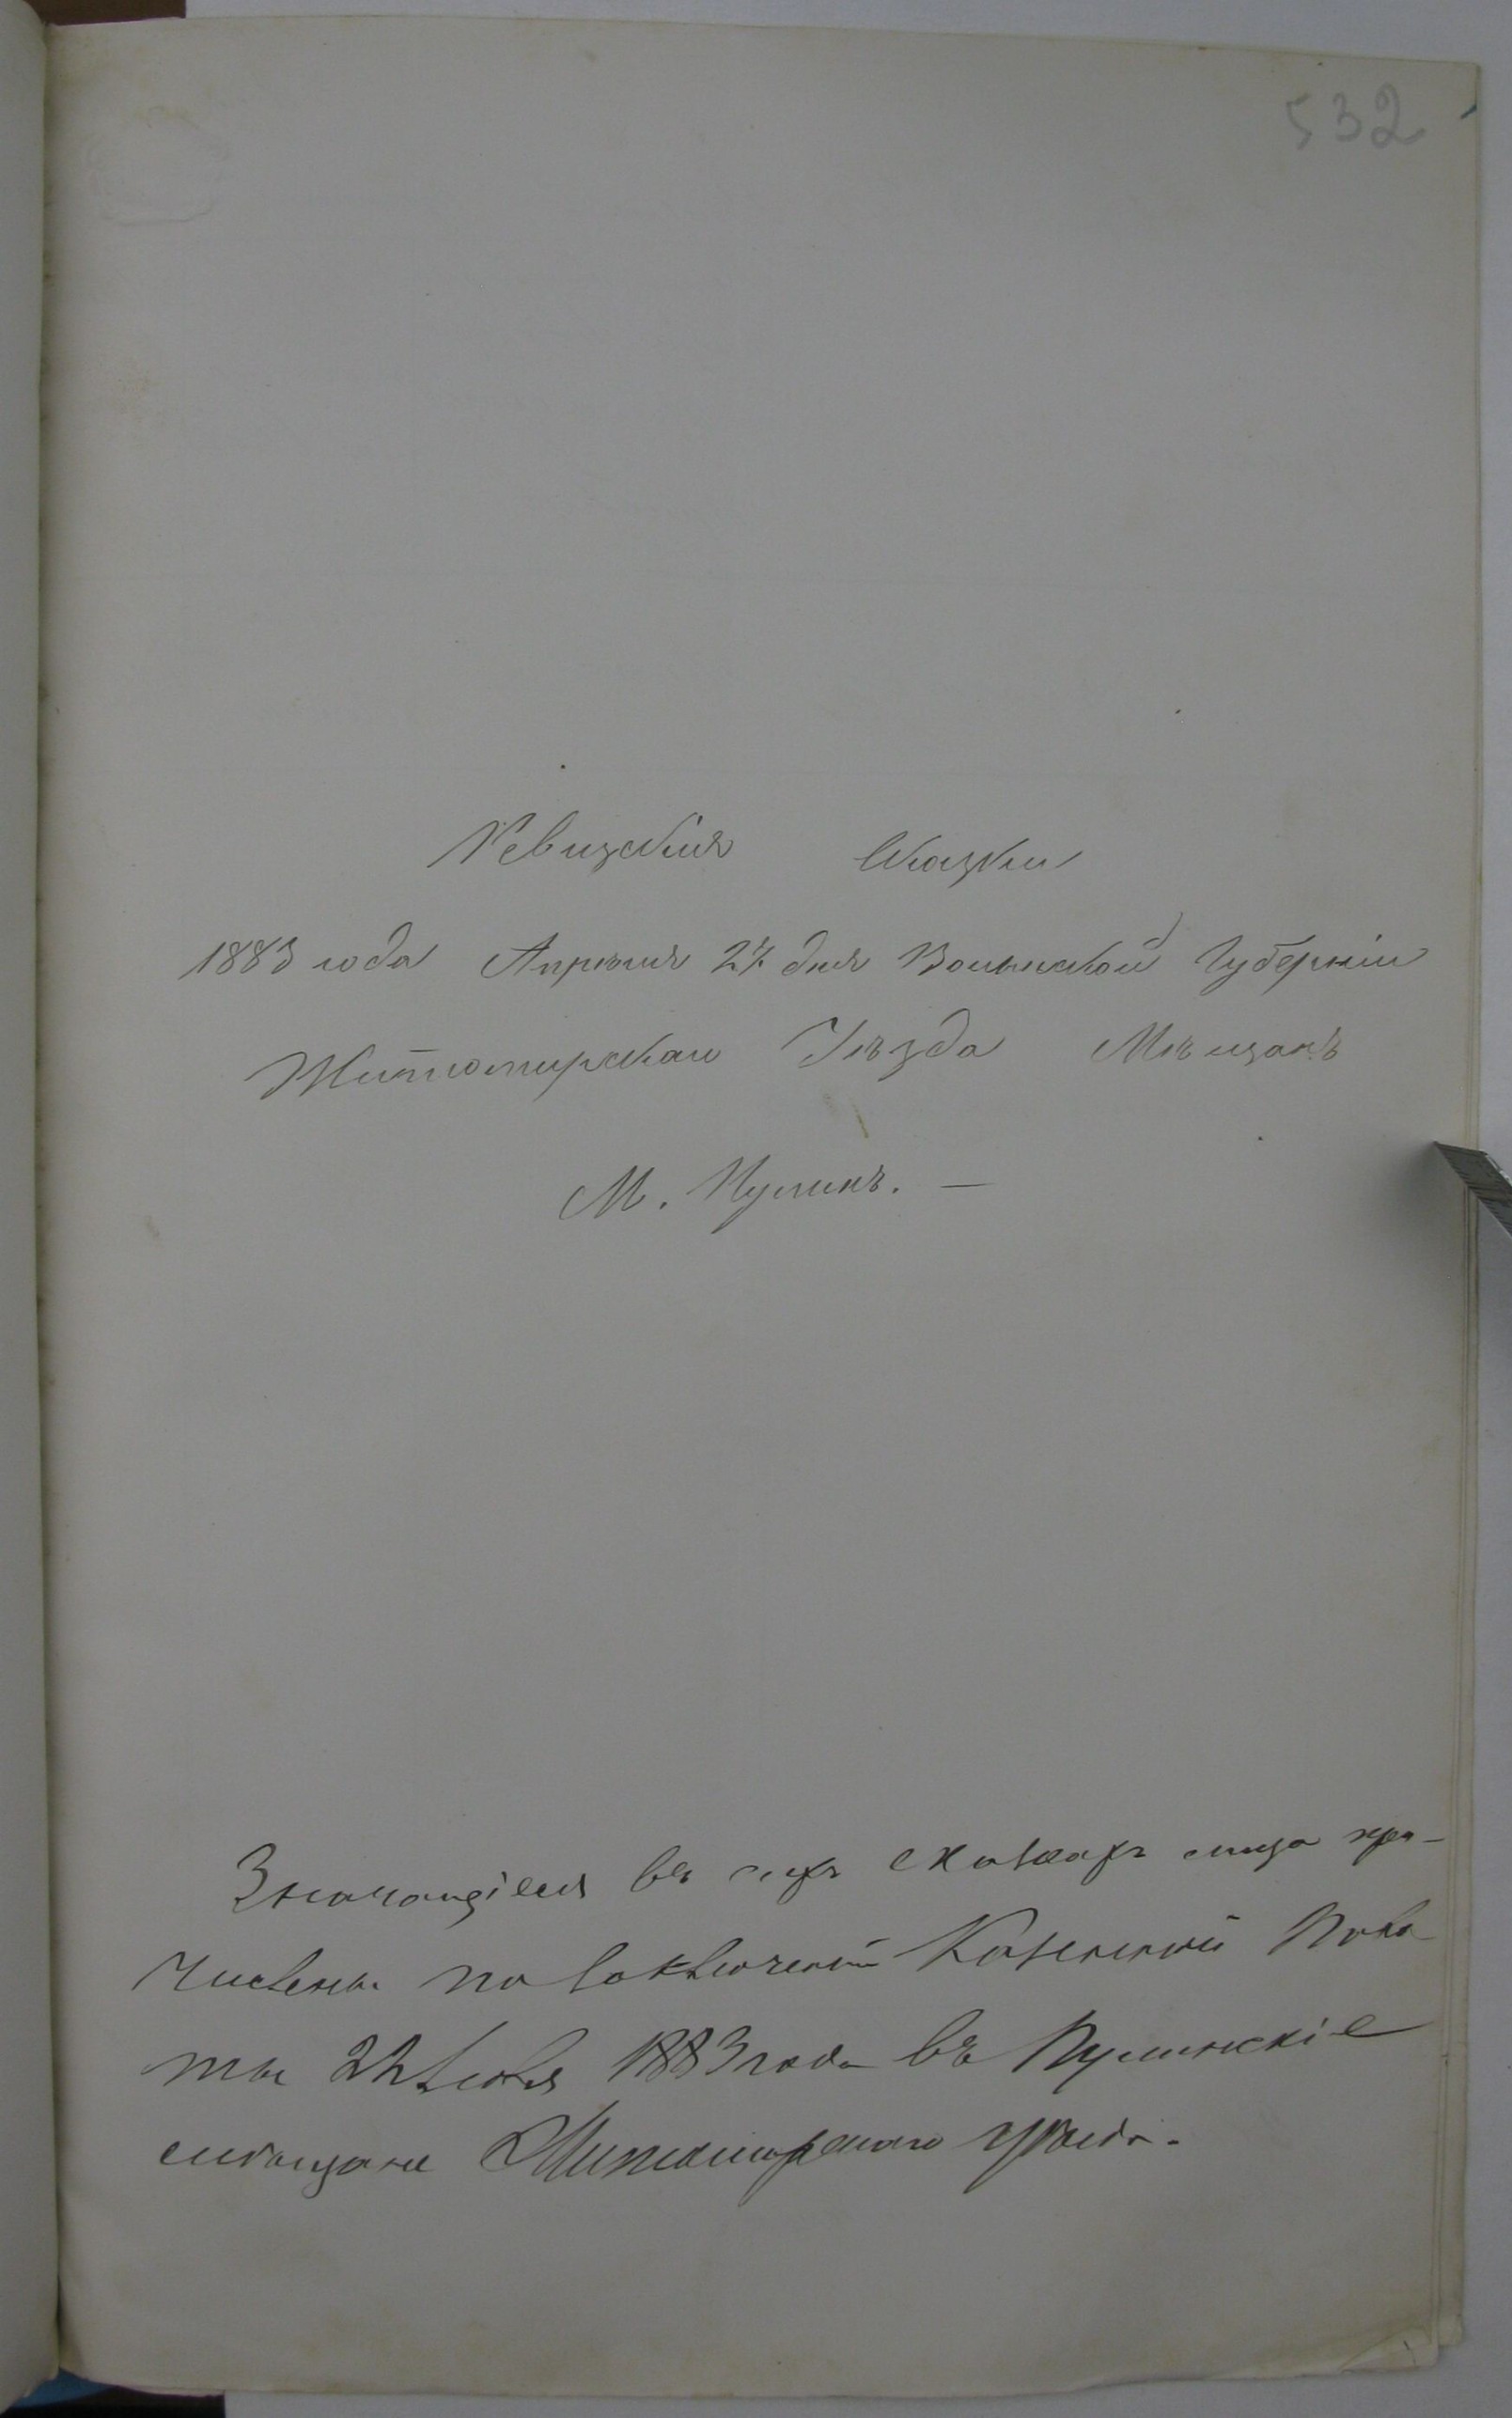 532
Ревизскія Сказки
1883 года Апрѣля 27 дня Волынской Губерніи
Житомирскаго Уѣзда Мѣщанъ
М. Пулинъ. —
Значащіеся въ сихъ сказкахъ лица при-
числены по заключенію Казенной Пала
ты 22 1883 года въ Пулинскіе
мѣщане Житомирскаго уѣзда.